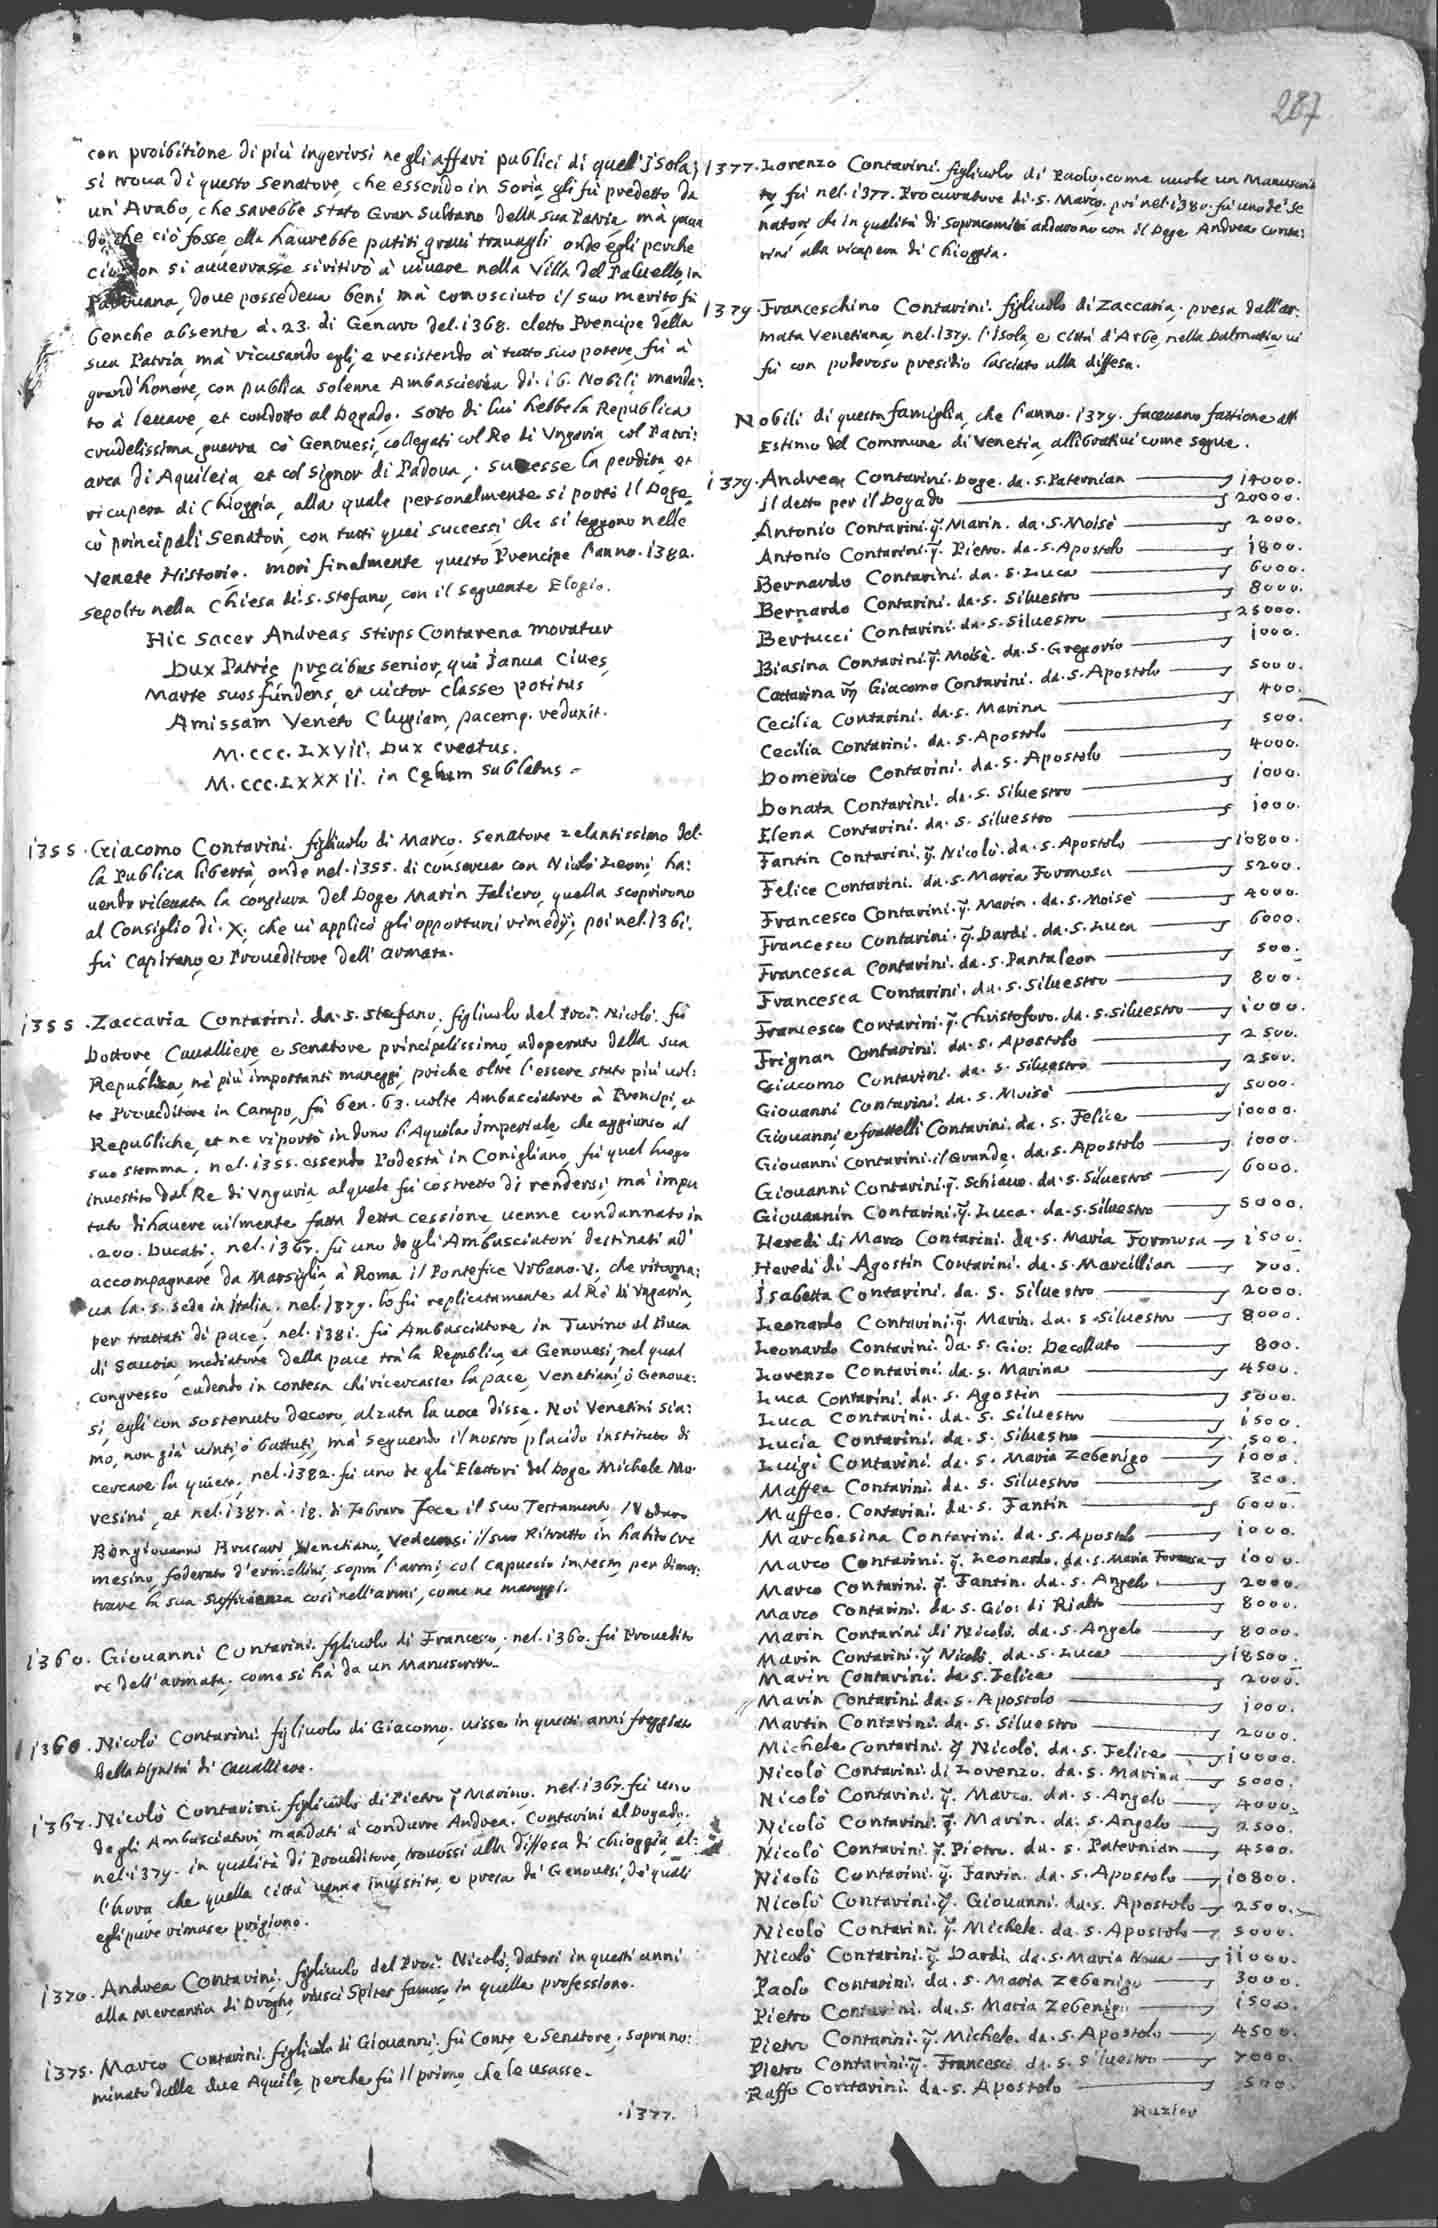 287
con proibitione di più ingerirsi negli affari publici di quell'isola;
si troua di questo Senatore, che essendo in Soria gli fù predetto da
un' Arabo, che sarebbe stato Gran Sultano della sua Patria, mà quan
do che ciò fosse, ella haurebbe patiti graui trauagli, onde egli perche
ciò non si auuerasse si ritirò à uiuere nella Villa del Paluello, in
Padouana, doue possedeua beni, mà conosciuto il suo merito fù
benche absente à. 23. di Genaro del. 1368. eletto Prencipe della
sua Patria, mà ricusando egli, e resistendo à tutto suo potere, fù à
grand'honore, con publica solenne Ambascieria di. 16. Nobili manda:
to à leuare, et condotto al Dogado. Sotto di lui hebbe la Republica
crudelissima guerra cò Genouesi, collegati col Re di Vngaria, col Patri:
arca di Aquileia, et col Signor di Padoua; successe la perdita, et
ricupera di Chioggia, alla quale personalmente si portò il Doge
cò principali Senatori, con tutti quei successi, che si leggono nelle
Venete Historie. morì finalmente questo Prencipe l'anno. 1382.
sepolto nella Chiesa di. S. Stefano, con il seguente Elogio.
Hic sacer Andreas stirps Contarena moratur
Dux Patrię pręcibus senior, qui Ianua Ciues
Marte suos fundens, et uictor classe potitus
Amissam Veneto Clugiam, pacemq. reduxit.
M.CCC.LXVII. Dux creatus.
M.CCC.LXXXII. in Cęlum sublatus.
1355. Giacomo Contarini. figliuolo di Marco. Senatore zelantissimo del:
la Publica libertà, onde nel. 1355. di conserua con Nicolò Leoni, ha:
uendo rileuata la congiura del Doge Marin Faliero, quella scoprirono
al Consiglio di. X. che ui applicò gli opportuni rimedij; poi nel. 1361.
fù Capitano, e Proueditore dell' armata.
1355. Zaccaria Contarini. da. S. Stefano. figliuolo del Procr. Nicolò. fù
Dottore, Caualliere, e Senatore principalissimo, adoperato dalla sua
Republica, nè più importanti maneggi, poiche oltre l'essere stato più uol:
te Proueditore in Campo, fù ben. 63. uolte Ambasciatore à Prencipi, et
Republiche, et ne riportò in dono l'Aquila Imperiale, che aggiunse al
suo stemma. nel. 1355. essendo Podestà in Conigliano, fù quel luogo
inuestito dal Re di Vngaria, al quale fù costretto di rendersi, mà impu
tato di hauere uilmente fatta detta cessione, uenne condannato in
.200. Ducati. nel. 1367. fù uno de gli Ambasciatori destinati ad'
accompagnare da Marsiglia à Roma il Pontefice Vrbano. V. che ritorna:
ua la. S. Sede in Italia. nel. 1379. lo fù replicatamente al Rè di Vngaria,
per trattati di pace. nel. 1381. fù Ambasciatore in Turino al Duca
di Sauoia, mediatore della pace trà la Republica, et Genouesi, nel qual
congresso cadendo in contesa chi ricercasse la pace, Venetiani, ò Genoue:
si, egli con sostenuto decoro, alzata la uoce disse. Noi Venetini sia:
mo, non già uinti, ò battuti, mà seguendo il nostro placido instituto di
cercare la quiete. nel. 1382. fù uno de gli Elettori del Doge Michele Mo:
resini, et nel. 1387. à. 18. di Febraro fece il suo Testamento,
Bongiouanni Brusari, Venetiano, Vedeuasi il suo Ritratto in habito cre
mesino, foderato d'ermellini, sopra l'armi, col capuccio in testa, per dimos:
trare la sua sufficienza così nell'armi, come ne maneggi.
1360. Giouanni Contarini. figliuolo di Francesco. nel. 1360. fù Prouedito
re dell'armata, come si hà da un Manuscritto.
1360. Nicolò Contarini. figliuolo di Giacomo. uisse in questi anni freggiato
della Dignità di Caualliere.
1367. Nicolò Contarini. figliuolo di Pietro q̃ Marino. nel. 1367. fù uno
degli Ambasciatori mandati à condurre Andrea Contarini al Dogado.
nel. 1379. in qualità di Proueditore, trouossi alla diffesa di Chioggia, al:
l'hora che quella città uenne inuestita, e presa dà Genouesi, dà quali
egli pure rimase prigione.
1370. Andrea Contarini. figliuolo del Procr. Nicolò. datosi in questi anni
alla Mercantia di Droghe, riuscì Spitier famoso in quella professione.
1375. Marco Contarini. figliuolo di Giouanni. fù Conte, e Senatore, soprano:
minato dalle due Aquile, perche fù il primo, che le usasse.
.1377.
1377. Lorenzo Contarini. figliuolo di Paolo. come uuole un Manuscrit
to, fù nel. 1377. Procuratore di. S. Marco. poi nel. 1380. fù uno de' Se
natori, che in qualità di Sopracomiti andarono con il Doge Andrea Conta:
rini alla ricupera di Chioggia.
1379. Franceschino Contarini. figliuolo di Zaccaria. presa dall'ar:
mata Venetiana, nel. 1379. l'Isola, e Città d'Arbe, nella Dalmatia, ui
fù con poderoso presidio lasciato alla diffesa.
Nobili di questa famiglia, che l'anno. 1379. faceuano fattione all'
Estimo del Commune di Venetia, allibrati come segue.
1379. Andrea Contarini. Doge. da. S. Paternian 14000.
il detto per il Dogado 20000.
Antonio Contarini. q̃. Marin. da. S. Moisè 2000.
Antonio Contarini. q̃. Pietro. da. S. Apostolo 1800.
Bernardo Contarini. da. S. Luca 6000.
Bernardo Contarini. da. S. Siluestro 8000.
Bertucci Contarini. da. S. Siluestro 25000.
Biasina Contarini. q̃. Moisè. da. S. Gregorio 1000.
Cattarina q̃ Giacomo Contarini. da. S. Apostolo 5000.
Cecilia Contarini. da. S. Marina 400.
Cecilia Contarini. da. S. Apostolo 500.
Domenico Contarini. da. S. Apostolo 4000.
Donata Contarini. da. S. Siluestro 1000.
Elena Contarini. da. S. Siluestro 1000.
Fantin Contarini. q̃. Nicolò. da. S. Apostolo 10800.
Felice Contarini. da. S. Maria Formosa 5200.
Francesco Contarini. q̃. Marin. da. S. Moisè 4000.
Francesco Contarini. q̃. Dardi. da. S. Luca 6000.
Francesca Contarini. da. S. Pantaleon 500.
Francesca Contarini. da. S. Siluestro 800.
Francesco Contarini. q̃. Christoforo. da. S. Siluestro 1000.
Frignan Contarini. da. S. Apostolo 2500.
Giacomo Contarini. da. S. Siluestro 2500.
Giouanni Contarini. da. S. Moisè 5000.
Giouanni, e fratelli Contarini. da. S. Felice 10000.
Giouanni Contarini. il Grande. da. S. Apostolo 1000.
Giouanni Contarini. q̃. Schiauo. da. S. Siluestro 6000.
Giouannin Contarini. q̃. Luca. da. S. Siluestro 5000.
Heredi di Marco Contarini. da. S. Maria Formosa 1500.
Heredi di Agostin Contarini. da. S. Marcillian 700.
Isabetta Contarini. da. S. Siluestro 2000.
Leonardo Contarini. q̃. Marin. da. S. Siluestro 8000.
Leonardo Contarini. da. S. Gio: Decollato 800.
Lorenzo Contarini. da. S. Marina 4500.
Luca Contarini. da. S. Agostin 5000.
Luca Contarini. da. S. Siluestro 1500.
Lucia Contarini. da. S. Siluestro 500.
Luigi Contarini. da. S. Maria Zebenigo 1000.
Maffea Contarini. da. S. Siluestro 300.
Maffeo Contarini. da. S. Fantin 6000.
Marchesina Contarini. da. S. Apostolo 1000.
Marco Contarini. q̃. Leonardo. da. S. Maria Formosa 1000.
Marco Contarini. q̃. Fantin. da. S. Angelo 2000.
Marco Contarini. da. S. Gio: di Rialto 8000.
Marin Contarini di Nicolò. da. S. Angelo 8000.
Marin Contarini. q̃ Nicolò. da. S. Luca 18500.
Marin Contarini. da. S. Felice 2000.
Marin Contarini. da. S. Apostolo 1000.
Martin Contarini. da. S. Siluestro 2000.
Michele Contarini. q̃ Nicolò. da. S. Felice 10000.
Nicolò Contarini. di Lorenzo. da. S. Marina 5000.
Nicolò Contarini. q̃. Marco. da. S. Angelo 4000.
Nicolò Contarini. q̃. Marin. da. S. Angelo 2500.
Nicolò Contarini. q̃. Pietro. da. S. Paternian 4500.
Nicolò Contarini. q̃. Fantin. da. S. Apostolo 10800.
Nicolò Contarini. q̃. Giouanni. da. S. Apostolo 2500.
Nicolò Contarini. q̃. Michele. da. S. Apostolo 5000.
Nicolò Contarini. q̃. Dardi. da. S. Maria Noua 11000.
Paolo Contarini. da. S. Maria Zebenigo 3000.
Pietro Contarini. da. S. Maria Zebenigo 1500.
Pietro Contarini. q̃. Michele. da. S. Apostolo 4500.
Pietro Contarini. q̃. Francesco. da. S. Siluestro 7000.
Raffo Contarini. da. S. Apostolo 500.
Ruzier